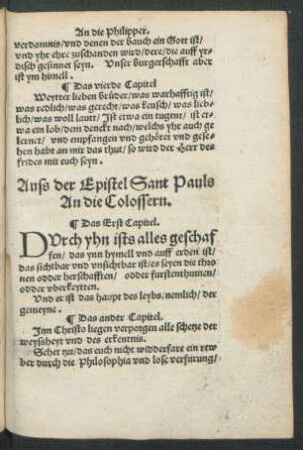 An die Philipper.
verdamnis/vnd denen der bauch ein Gott ist/
vnd yhr ehre zuschanden wird/dere/die auff yr-
disch gesinnet seyn. Vnser burgerschafft aber
ist ym himell.
¶ Das vierde Capitel
Weytter lieben brüder/was warhafftig ist/
was redlich/was gerecht/was keusch/was lieb-
lich/was woll lautt/Ist etwa ein tugent/ist et-
wa ein lob/dem denckt nach/welchs yhr auch ge
lernet/vnd empfangen vnd gehöret vnd gese-
hen habt an mir das thut/so wird der Herr des
frides mit euch seyn.
Auss der Epistel Sant Pauls
An die Colossern.
¶ Das Erst Capitel.
DVrch yhn ists alles geschaf
fen/das ynn hymell vnd auff erden ist/
das sichtbar vnd vnsichtbar ist/es seyen die thro
nen odder herschafften/odder furstenthumen/
odder vberkeytten.
Vnd er ist das haupt des leybs/nemlich/der
gemeyne.
¶ Das ander Capitel.
Inn Christo liegen verporgen alle schetze der
weysheyt vnd des erkentnis.
Sehet zu/das euch nicht widderfare ein rew
ber durch die Philosophia vnd lose verfurung/